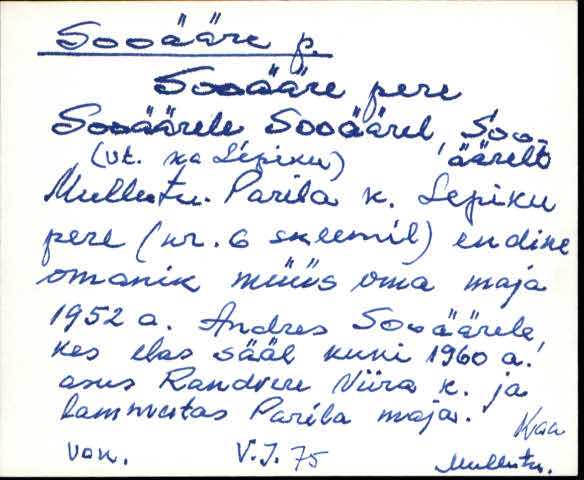 Sooääre p.
Sooääre pere
Sooäärele Sooäärel, Soo-
äärelt
(vt. ka Lepiku)
Mullutu. Parila k. Lepiku
pere (nr. 6 skeemil) endine
omanik müüs oma maja
1952 a. Andres Sooäärele,
kes elas sääl kuni 1960 a.
asus Randvere Viira k. ja
lammutas Parila maja.
Kaa
von. V.J. 75 Mullutu.